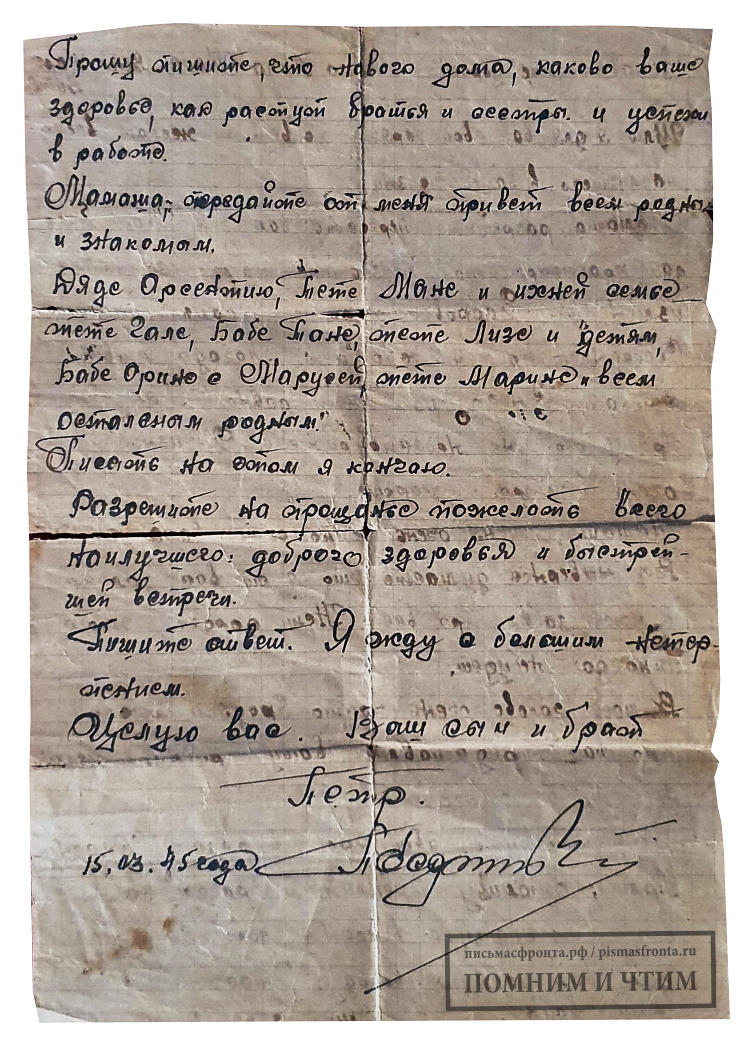 Прошу пишите, что нового дома, каково ваше
здоровье, как растут братья и сестры. и успехи
в работе.
Мамаша, передайте от меня привет всем родным
и знакомым.
Дяде Арсентию, Тете Мане и ихней семье
тете Гале, Бабе Тане, тете Лизе и детям,
Бабе Орине с Марусей, тете Марине и всем
остальным родным.
Писать на этом я кончаю.
Разрешите на прощанье пожелать всего
наилучшего: доброго здоровья и быстрей-
шей встречи.
Пишите ответ. Я жду с большим нетер-
пением.
Целую вас. Ваш сын и брат
Петр.
15.03.45 года
письмасфронта.рф / pismasfronta.ru
ПОМНИМ И ЧТИМ